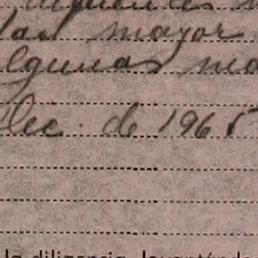 las mayor
algunas ma
Dic. de 1965
la diligencia, levantándo